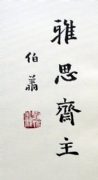 雅思齋主
伯翁